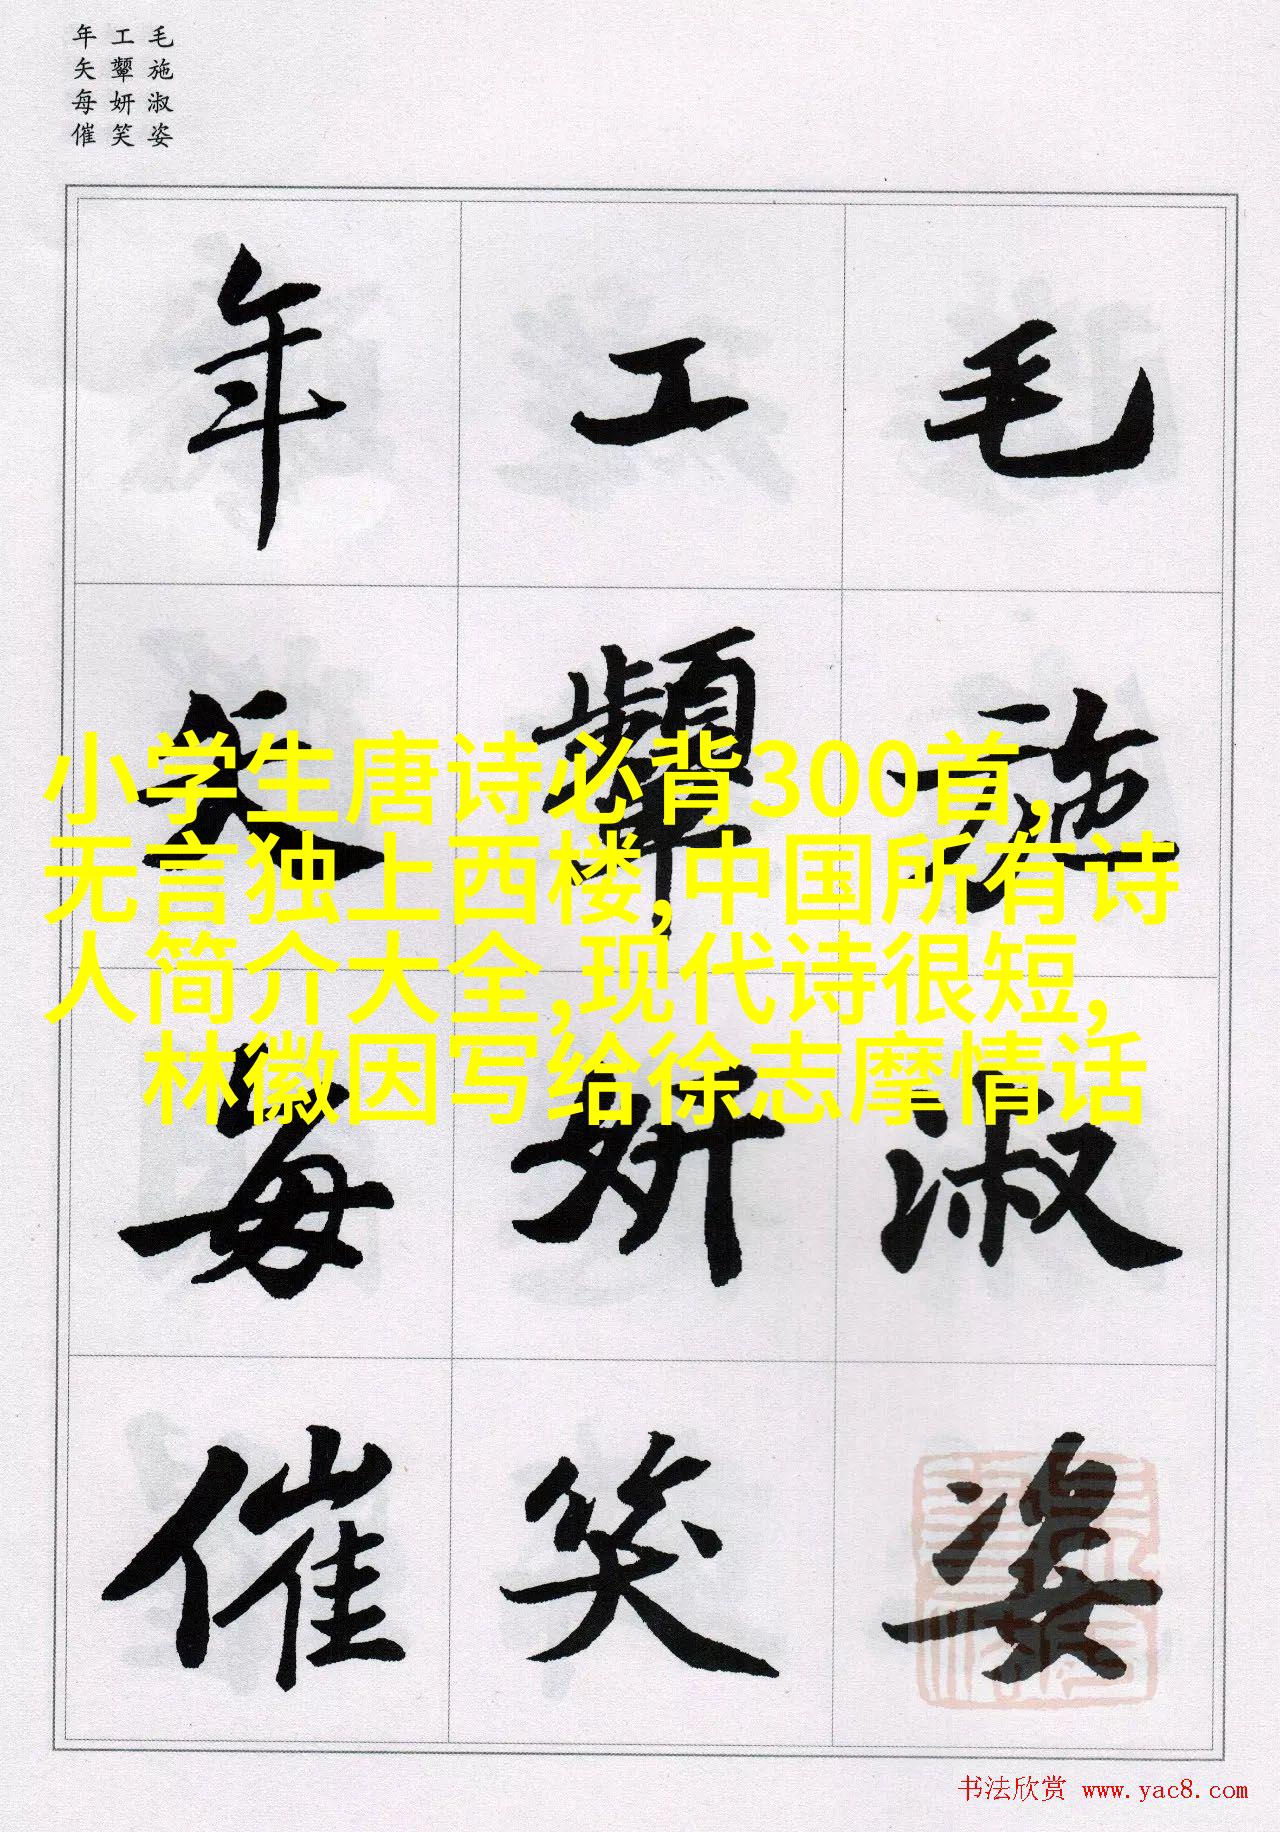 毛施淑姿
工颦妍笑
年矢每催
毛施淑姿
工颦妍笑
年矢每催
小学生唐诗必背300首,
无言独上西楼,中国所有诗
人简介大全,现代诗很短,
林徽因写给徐志摩情话
书法欣赏 www.yac8.com